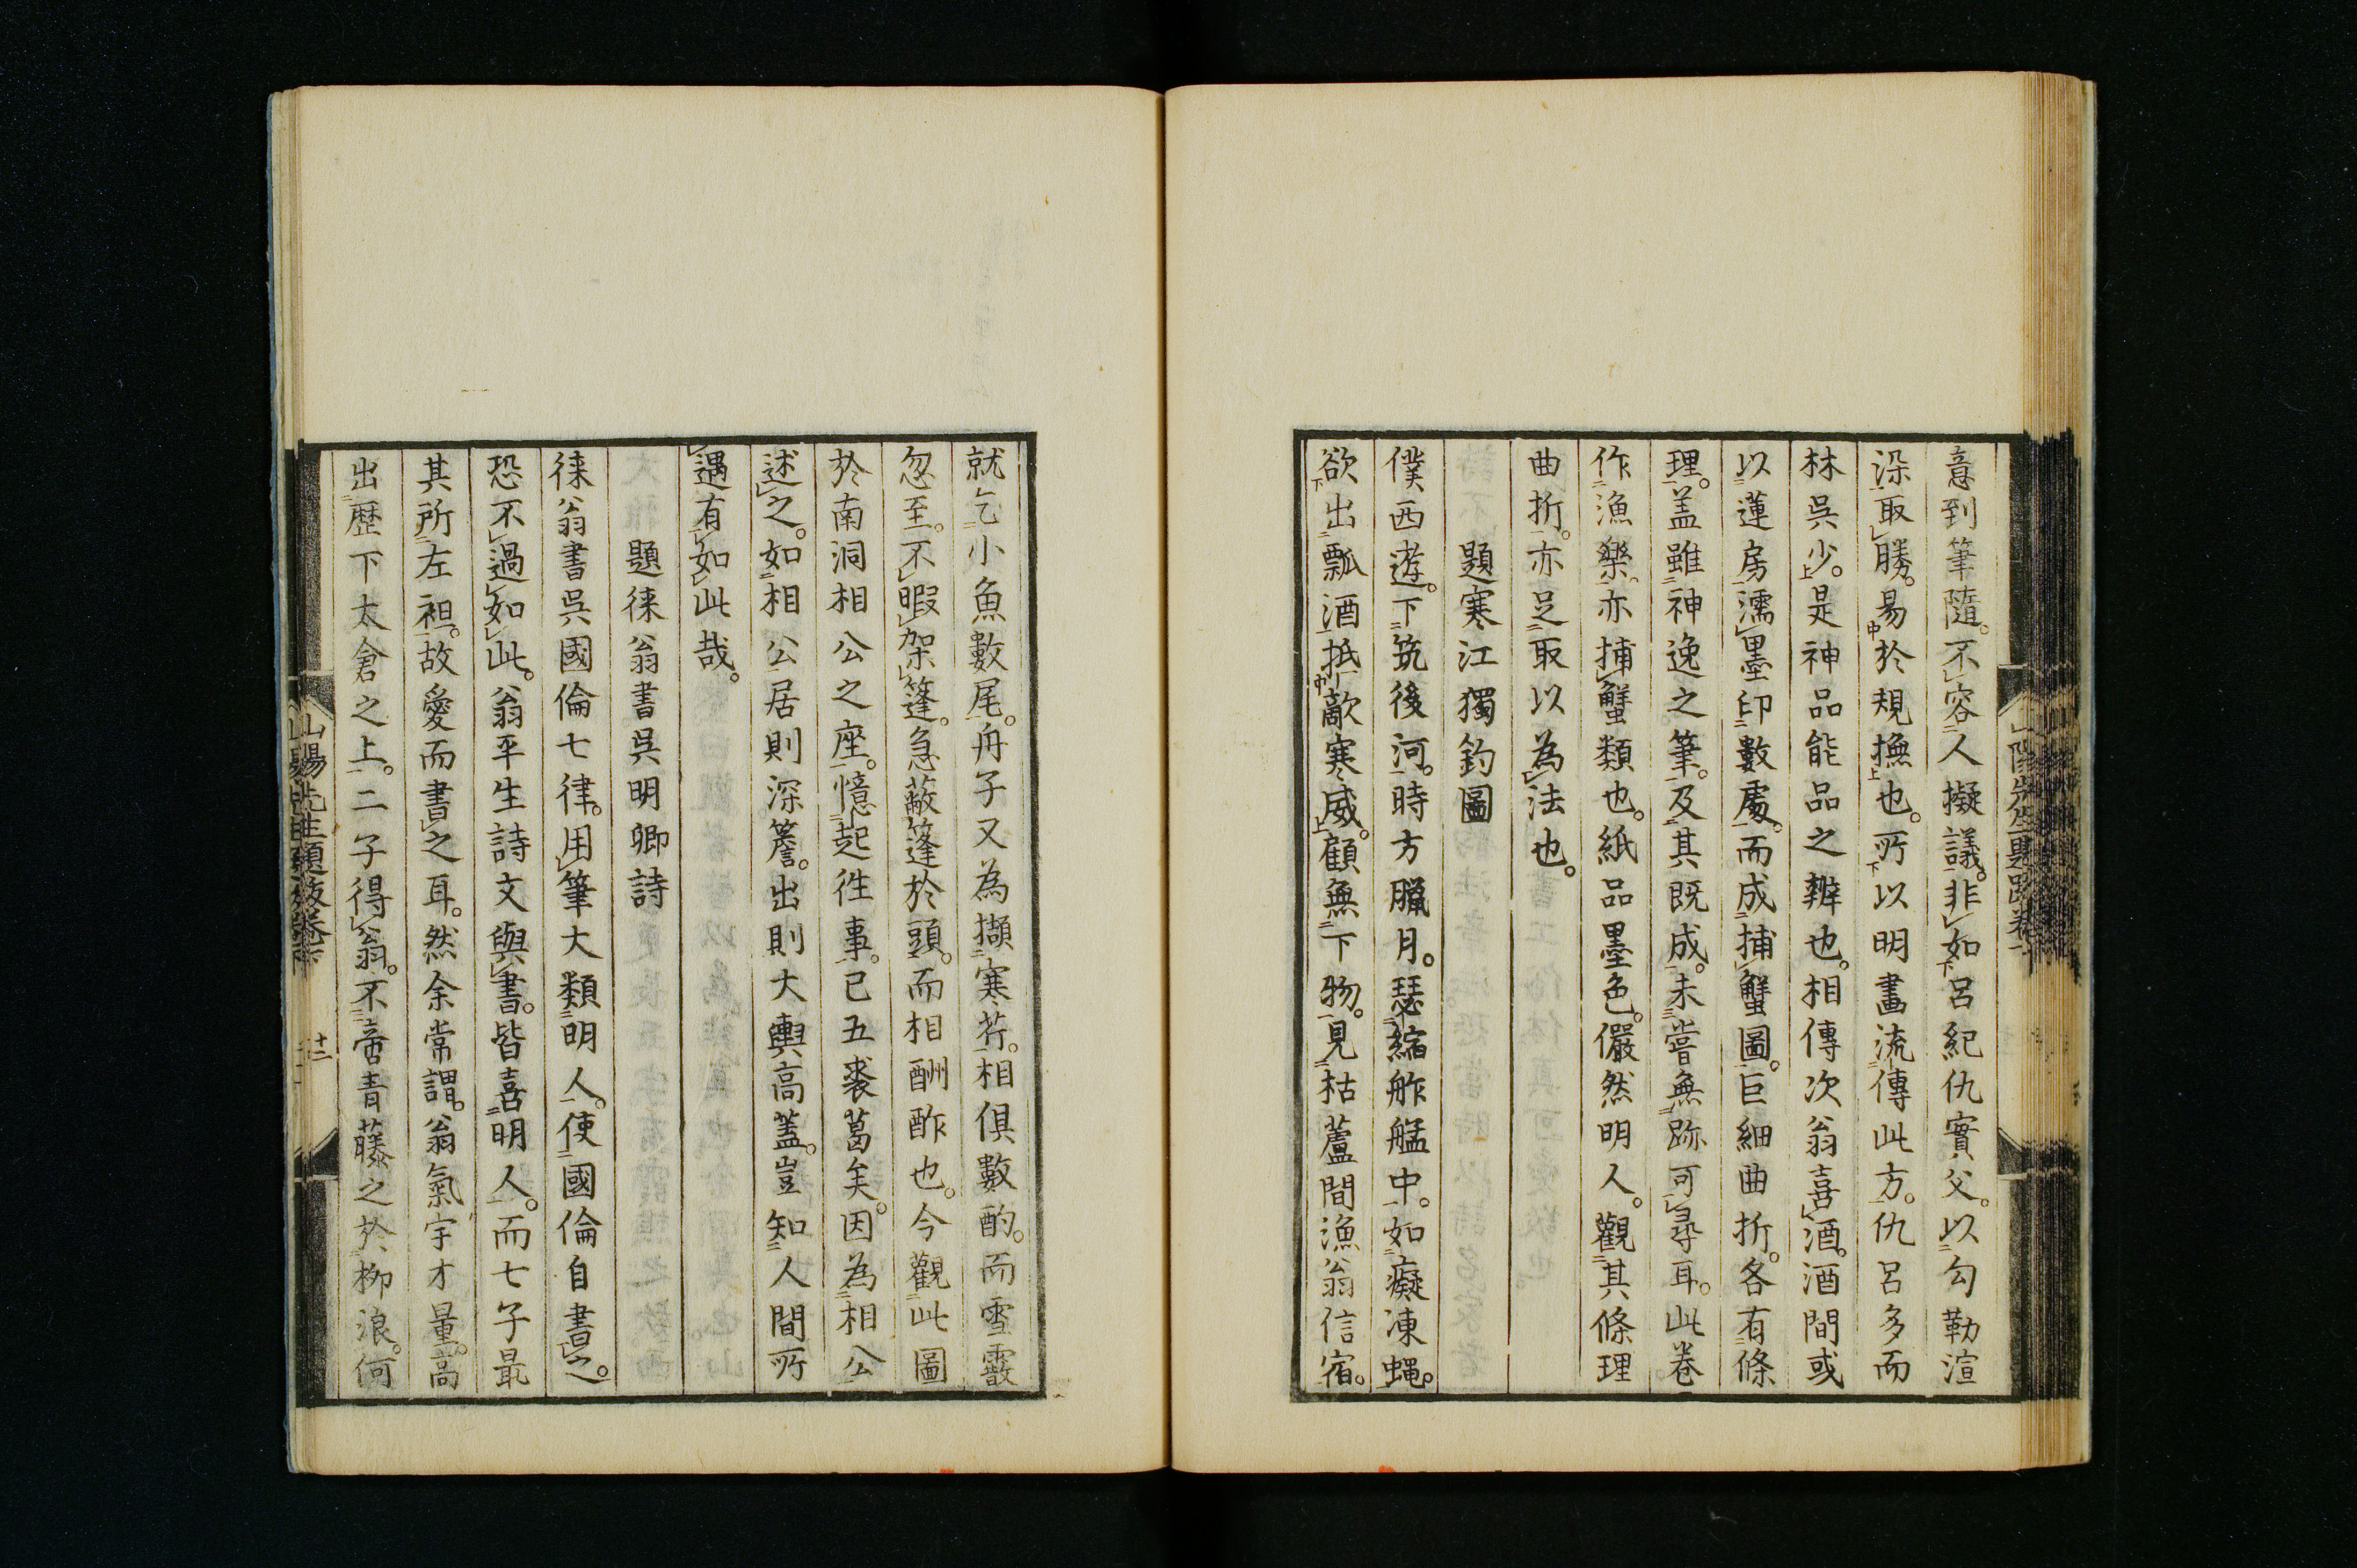 意到筆隨。不容人擬議。非如呂紀仇實父。以勾勒渲
染取勝。易於規撫也。所以明畫流傳此方。仇呂多而
林吳少。是神品能品之辨也。相傳次翁喜酒。酒間或
以蓮房濡墨印數處。而成捕蟹圖。巨細曲折。各有條
理。蓋雖神逸之筆。及其既成。未嘗無跡可尋耳。此卷
作漁樂。亦捕蟹類也。紙品墨色。儼然明人。觀其條理
曲折。亦足取以為法也。
題寒江獨釣圖
僕西遊。下筑後河。時方臘月。瑟縮舴艋中。如癡凍蝿。
欲出瓢酒抵敵寒威。顧無下物。見枯蘆間漁翁信宿。
就乞小魚數尾。舟子又為擷寒芥。相俱數酌。而雪霰
忽至。不暇架篷。急蔽篷於頭。而相酬酢也。今觀此圖
於南洞相公之座。憶起徃事。已五裘葛矣。因為相公
述之。如相公居則深簷。出則大輿高蓋。豈知人間所
遇有如此哉。
題徠翁書吳明卿詩
徠翁書吳國倫七律。用筆大類明人。使國倫自書之。
恐不過如此。翁平生詩文與書。皆喜明人。而七子最
其所左袒。故愛而書之耳。然余常謂。翁氣宇才量。高
出歷下太倉之上。二子得翁。不啻青藤之於柳浪。何
山陽先生題跋卷下
十二